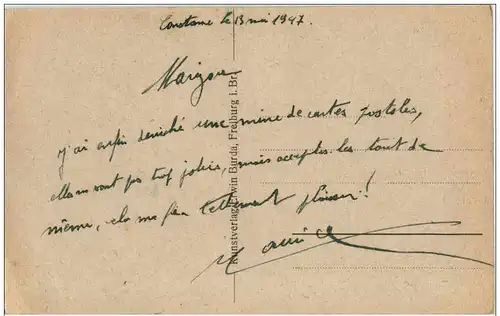 Constance le 13 mai 1947.
j'ai enfin déniché une mine de cartes postales,
elles ne sont pas trop jolies, mais acceptez les tout de
même, cela me fera tellement plaisir!
Kunstverlag Erwin Burda, Freiburg i. Br.